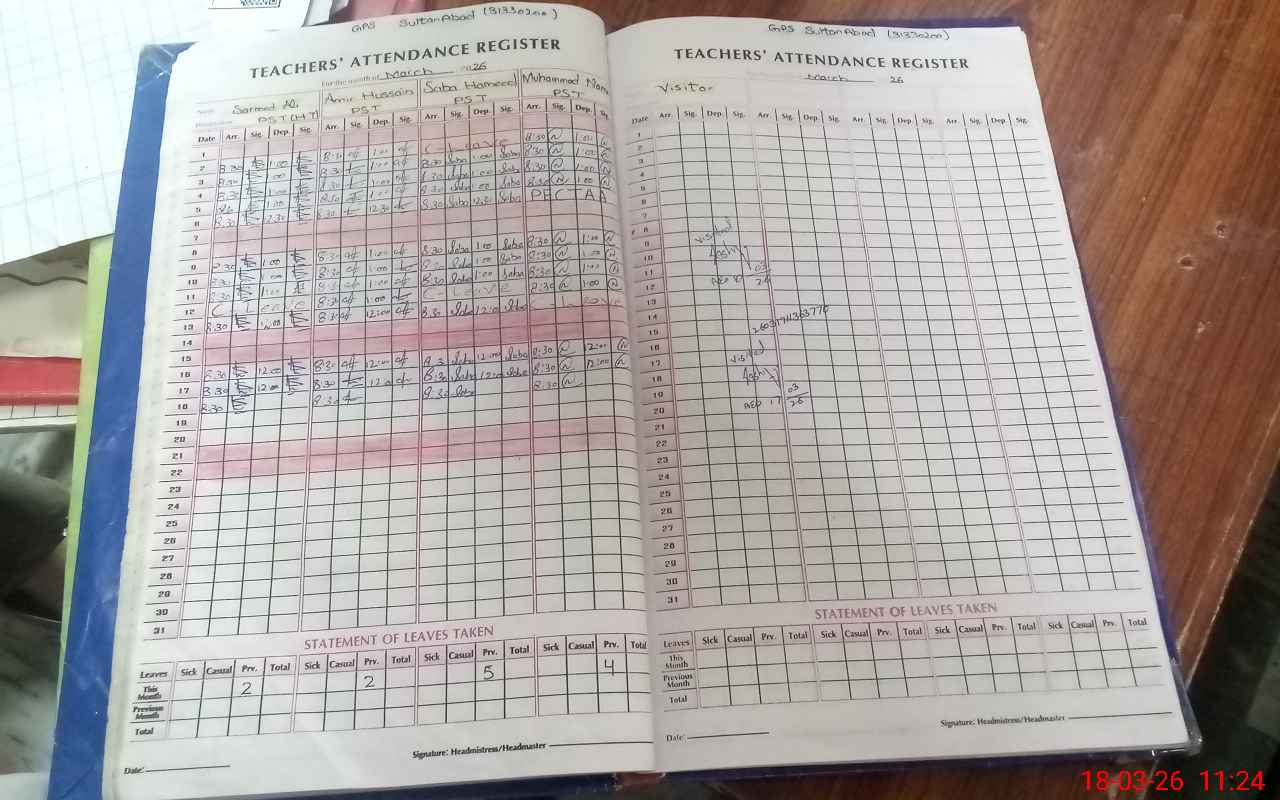 GPS Sultan Abad (31330200)
TEACHERS' ATTENDANCE REGISTER
For the month of March 2026
Name Sarmed Ali Amir Hussain Saba Hameed Muhammad
PST (HT) PST PST PST
Date Arr. Sig. Dep. Sig. Arr. Sig. Dep. Sig. Arr. Sig. Dep. Sig. Arr. Sig. Dep. Sig.
1
2 8:30 1:00 8:30 1:00 C-Leave 8:30 1:00
3 8:30 1:00 8:30 1:00 8:30 Saba 1:00 Saba 8:30 1:00
4 8:30 1:00 8:30 1:00 8:30 Saba 1:00 Saba 8:30 1:00
5 1:00 8:30 1:00 8:30 Saba 1:00 Saba 8:30 1:00
6 8:30 12:30 8:30 12:30 8:30 Saba 12:30 Saba PECTAA
7
8
9 8:30 1:00 8:30 1:00 8:30 Saba 1:00 Saba 8:30 1:00
10 8:30 1:00 8:30 1:00 Saba 1:00 Saba 8:30 1:00
11 8:30 1:00 8:30 1:00 8:30 Saba 1:00 Saba 8:30 1:00
12 C-Leave 8:30 1:00 C-Leave 8:30 1:00
13 8:30 12:00 8:30 12:00 8:30 Saba 12:00 Saba C-Leave
14
15
16 8:30 12:00 8:30 12:00 8:30 Saba 12:00 Saba 8:30 12:00
17 8:30 12:00 8:30 12:00 8:30 Saba 12:00 Saba 8:30 12:00
18 8:30 8:30 8:30 Saba 8:30
19
20
21
22
23
24
25
26
27
28
29
30
31
STATEMENT OF LEAVES TAKEN
Leaves Sick Casual Prv. Total Sick Casual Prv. Total Sick Casual Prv. Total Sick Casual Prv. Total
This Month 2 2 5 4
Previous Month
Total
Signature: Headmistress/Headmaster
Date:
GPS Sultan Abad (31330200)
TEACHERS' ATTENDANCE REGISTER
March 26
Visitor
Date Arr. Sig. Dep. Sig. Arr. Sig. Dep. Sig. Arr. Sig. Dep. Sig. Arr. Sig. Dep. Sig.
1
2
3
4
5
6
7
8
9 Visited
10
11 AEO 03
12 26
13
14
15
16
17 Visited
18
19 AEO 17 03
20 26
21
22
23
24
25
26
27
28
29
30
31
STATEMENT OF LEAVES TAKEN
Leaves Sick Casual Prv. Total Sick Casual Prv. Total Sick Casual Prv. Total Sick Casual Prv. Total
This Month
Previous Month
Total
Signature: Headmistress/Headmaster
Date:
18-03-26 11:24